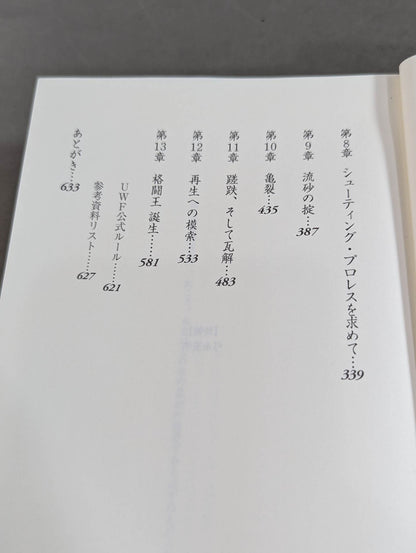 第8章 シューティング・プロレスを求めて……339
第9章 流砂の掟……387
第10章 亀裂……435
第11章 蹉跌、そして瓦解……483
第12章 再生への模索……533
第13章 格闘王 誕生……581
UWF公式ルール……621
参考資料リスト……627
あとがき……633